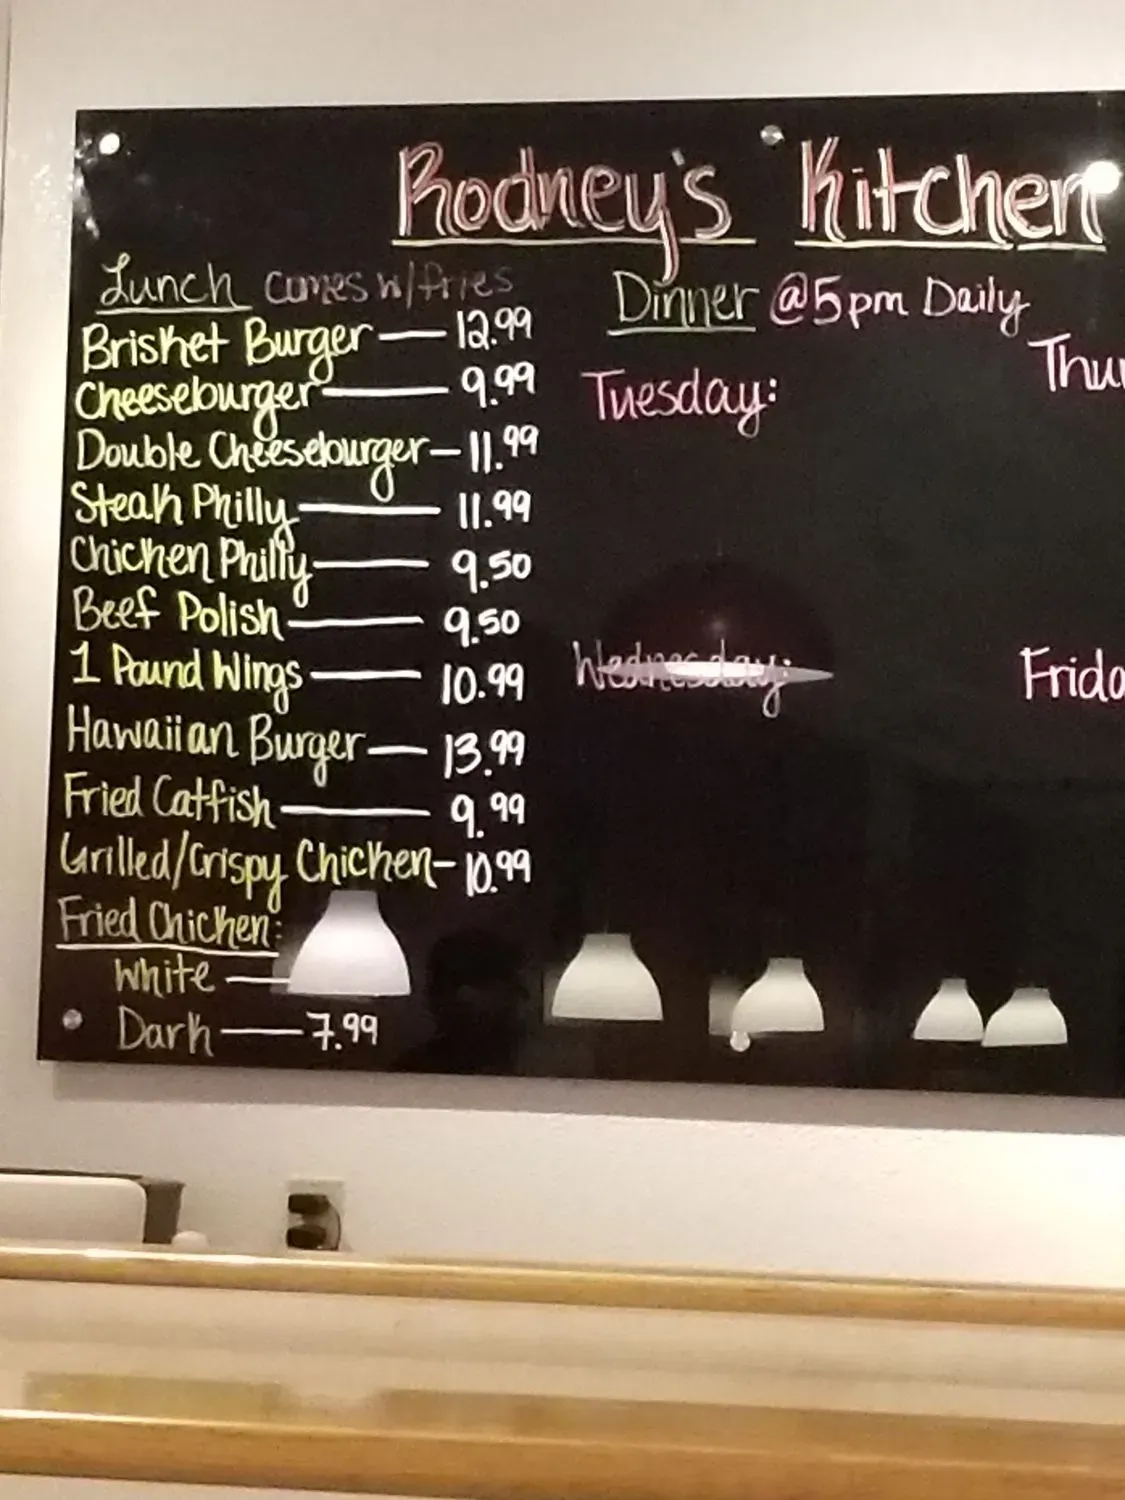 Rodney's Kitchen
Lunch comes w/fries
Brisket Burger — 12.99
Cheeseburger — 9.99
Double Cheeseburger — 11.99
Steak Philly — 11.99
Chicken Philly — 9.50
Beef Polish — 9.50
1 Pound Wings — 10.99
Hawaiian Burger — 13.99
Fried Catfish — 9.99
Grilled/Crispy Chicken — 10.99
Fried Chicken:
White —
Dark — 7.99
Dinner @5pm Daily
Tuesday:
Wednesday:
Thu
Frida